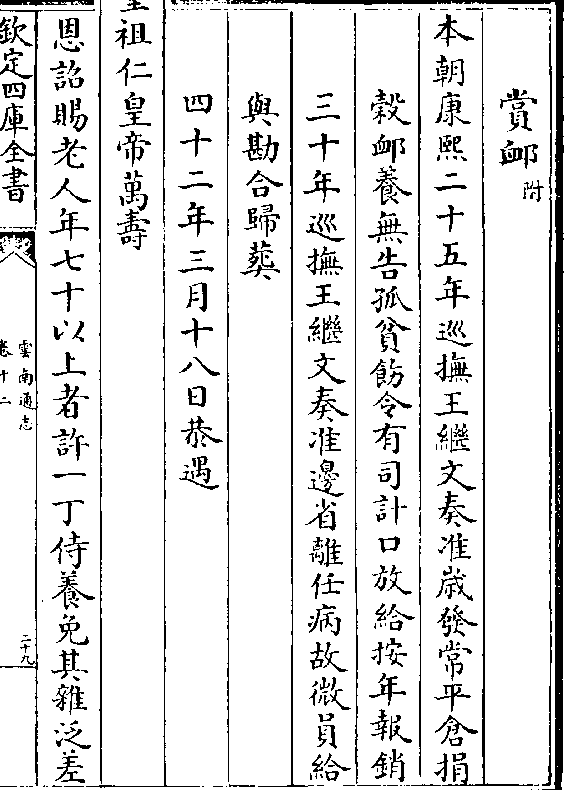 賞䘏附
本朝康熙二十五年巡撫王繼文奏准歲發常平倉捐
穀䘏養無告孤貧飭令有司計口放給按年報銷
三十年巡撫王繼文奏准邊省離任病故微員給
與勘合歸葬
四十二年三月十八日恭遇
聖祖仁皇帝萬壽
恩詔賜老人年七十以上者許一丁侍養免其雜泛差
欽定四庫全書
雲南通志
卷十二
二十九